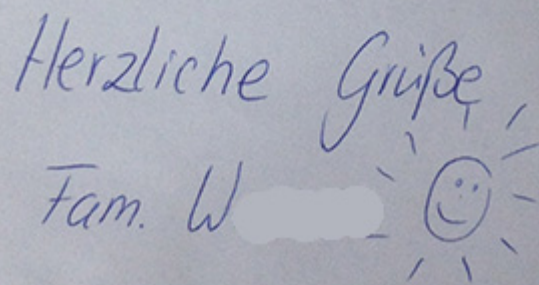 Herzliche Grüße
Fam. W